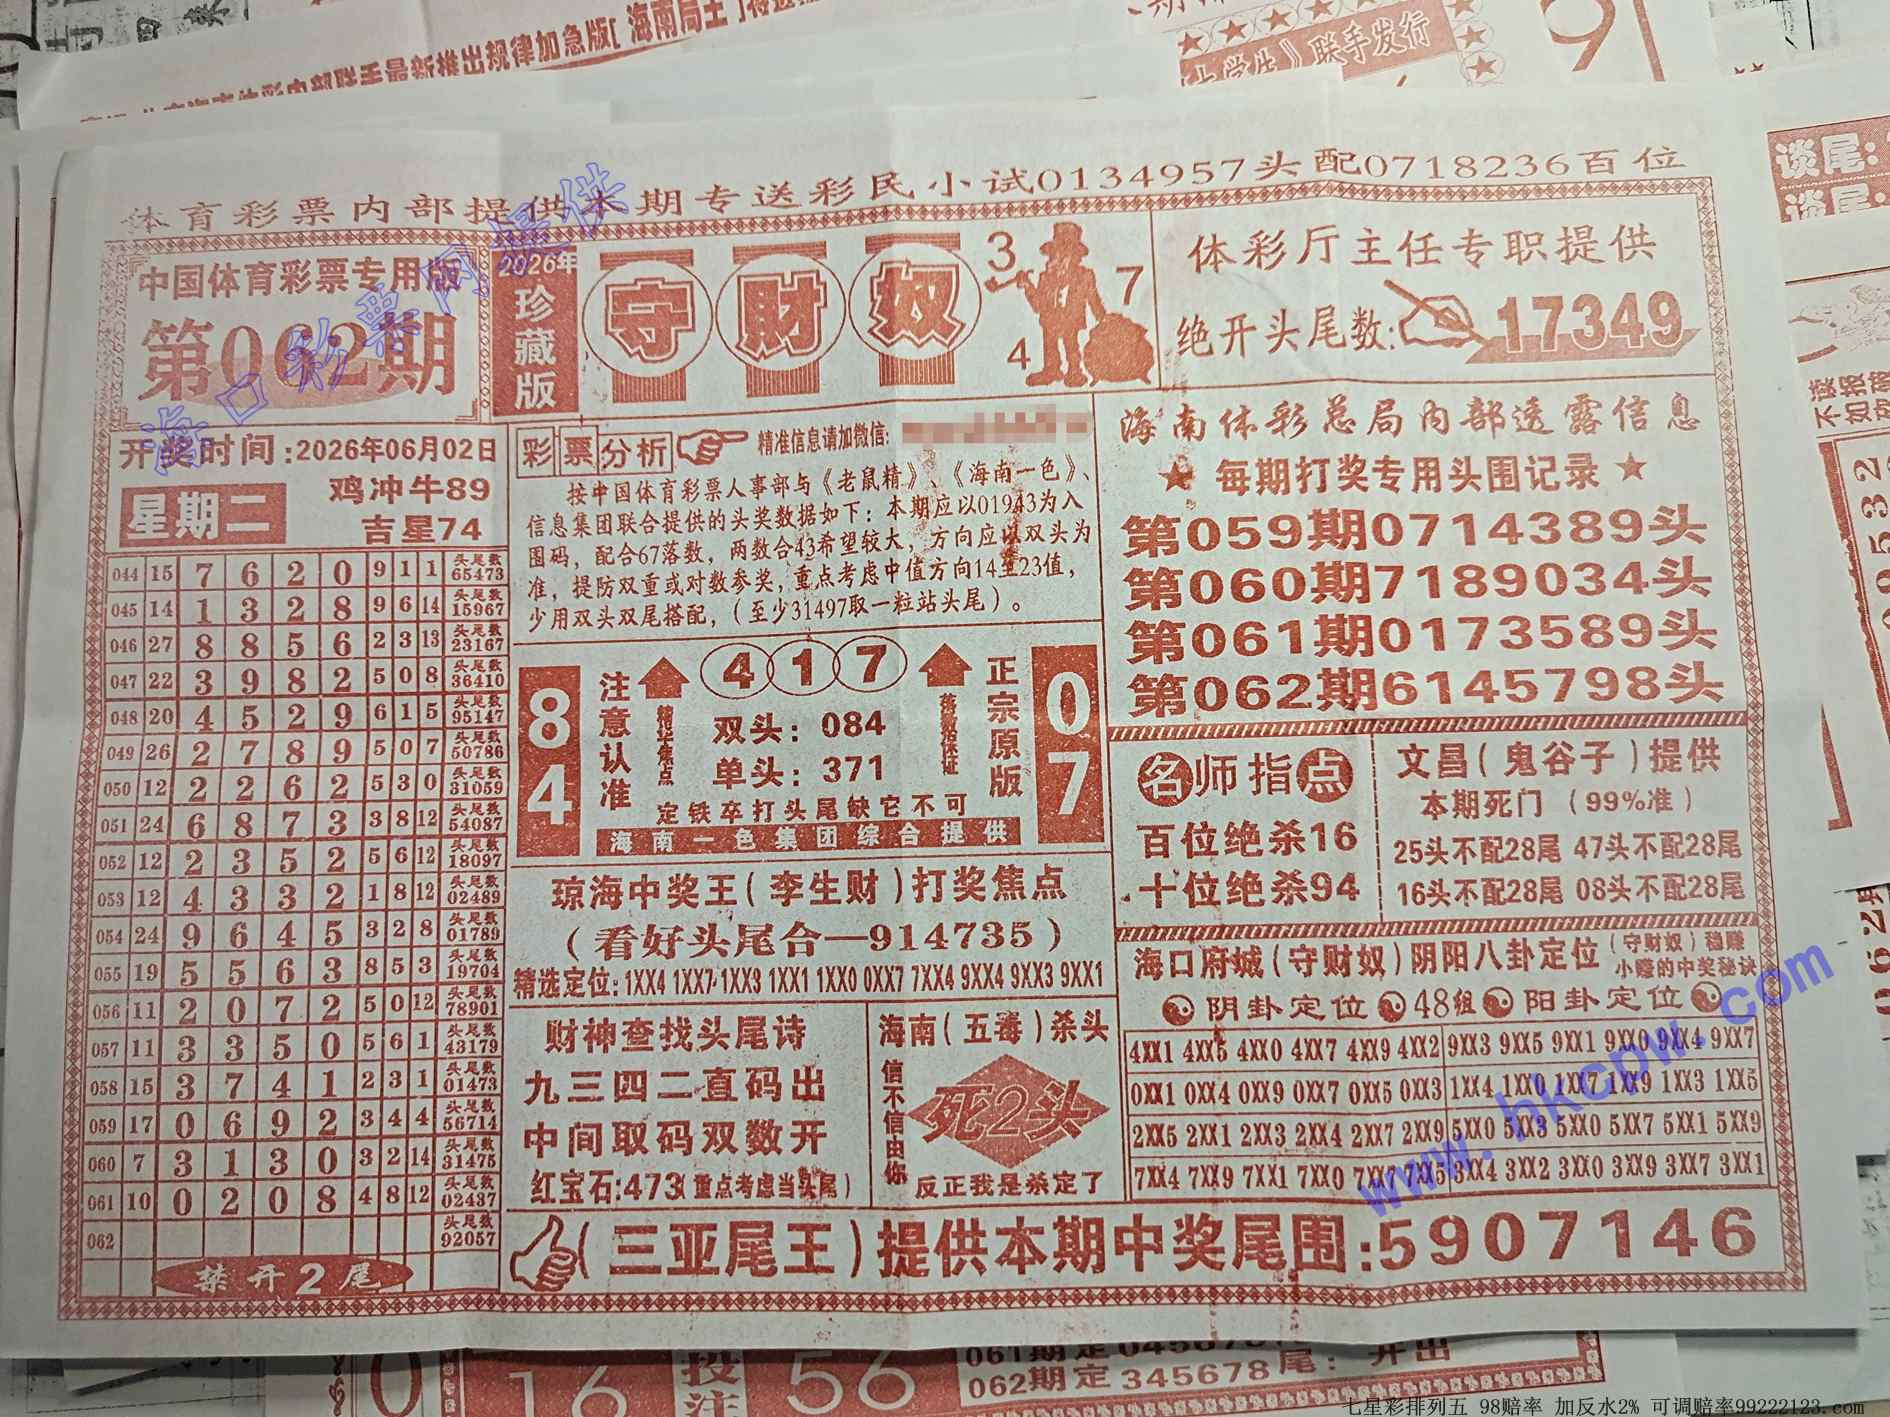 体育彩票内部提供本期专送彩民小试0134957头配0718236百位
中国体育彩票专用版
第062期
2026年
珍藏版
守财奴
3
7
4
体彩厅主任专职提供
绝开头尾数:17349
开奖时间:2026年06月02日
星期二
鸡冲牛89
吉星74
044 15 7 6 2 0 9 1 1 头尾数 65473
045 14 1 3 2 8 9 6 14 头尾数 15967
046 27 8 8 5 6 2 3 13 头尾数 23167
047 22 3 9 8 2 5 0 8 头尾数 36410
048 20 4 5 2 9 6 1 5 头尾数 95147
049 26 2 7 8 9 5 0 7 头尾数 50786
050 12 2 2 6 2 5 3 0 头尾数 31059
051 24 6 8 7 3 3 8 12 头尾数 54087
052 12 2 3 5 2 5 6 12 头尾数 18097
053 12 4 3 3 2 1 8 12 头尾数 02489
054 24 9 6 4 5 3 2 8 头尾数 01789
055 19 5 5 6 3 8 5 3 头尾数 19704
056 11 2 0 7 2 5 0 12 头尾数 78901
057 11 3 3 5 0 5 6 1 头尾数 43179
058 15 3 7 4 1 2 3 1 头尾数 01473
059 17 0 6 9 2 3 4 4 头尾数 56714
060 7 3 1 3 0 3 2 14 头尾数 31475
061 10 0 2 0 8 4 8 12 头尾数 02437
062 头尾数 92057
禁开2尾
彩票分析 精准信息请加微信:
按中国体育彩票人事部与《老鼠精》、《海南一色》、
信息集团联合提供的头奖数据如下：本期应以01943为入
围码，配合67落数，两数合43希望较大，方向应以双头为
准，提防双重或对数参奖，重点考虑中值方向14至23值，
少用双头双尾搭配，（至少31497取一粒站头尾）。
84
注意认准
精华焦点
417
双头：084
单头：371
落数保证
正宗原版
07
定铁卒打头尾缺它不可
海南一色集团综合提供
琼海中奖王(李生财)打奖焦点
(看好头尾合—914735)
精选定位:1XX4 1XX7 1XX3 1XX1 1XX0 0XX7 7XX4 9XX4 9XX3 9XX1
财神查找头尾诗
九三四二直码出
中间取码双数开
红宝石:473(重点考虑当头尾)
海南(五毒)杀头
信不信由你
死2头
反正我是杀定了
海南体彩总局内部透露信息
★每期打奖专用头围记录★
第059期0714389头
第060期7189034头
第061期0173589头
第062期6145798头
名师指点
百位绝杀16
十位绝杀94
文昌(鬼谷子)提供
本期死门（99%准）
25头不配28尾 47头不配28尾
16头不配28尾 08头不配28尾
海口府城(守财奴)阴阳八卦定位
(守财奴)稳赚
小赌的中奖秘诀
阴卦定位 48组 阳卦定位
4XX1 4XX5 4XX0 4XX7 4XX9 4XX2 9XX3 9XX5 9XX1 9XX0 9XX4 9XX7
0XX1 0XX4 0XX9 0XX7 0XX5 0XX3 1XX4 1XX0 1XX7 1XX9 1XX3 1XX5
2XX5 2XX1 2XX3 2XX4 2XX7 2XX9 5XX0 5XX3 5XX0 5XX7 5XX1 5XX9
7XX4 7XX9 7XX1 7XX0 7XX7 7XX5 3XX4 3XX2 3XX0 3XX9 3XX7 3XX1
(三亚尾王)提供本期中奖尾围:5907146
海口彩票网提供
www.hkcpw.com
最新推出规律加急版[海南局王]
联手发行
谈尾:
谈尾:
16
投注
56
062期定345678尾：开出
七星彩排列五 98赔率 加反水2% 可调赔率99222123.com